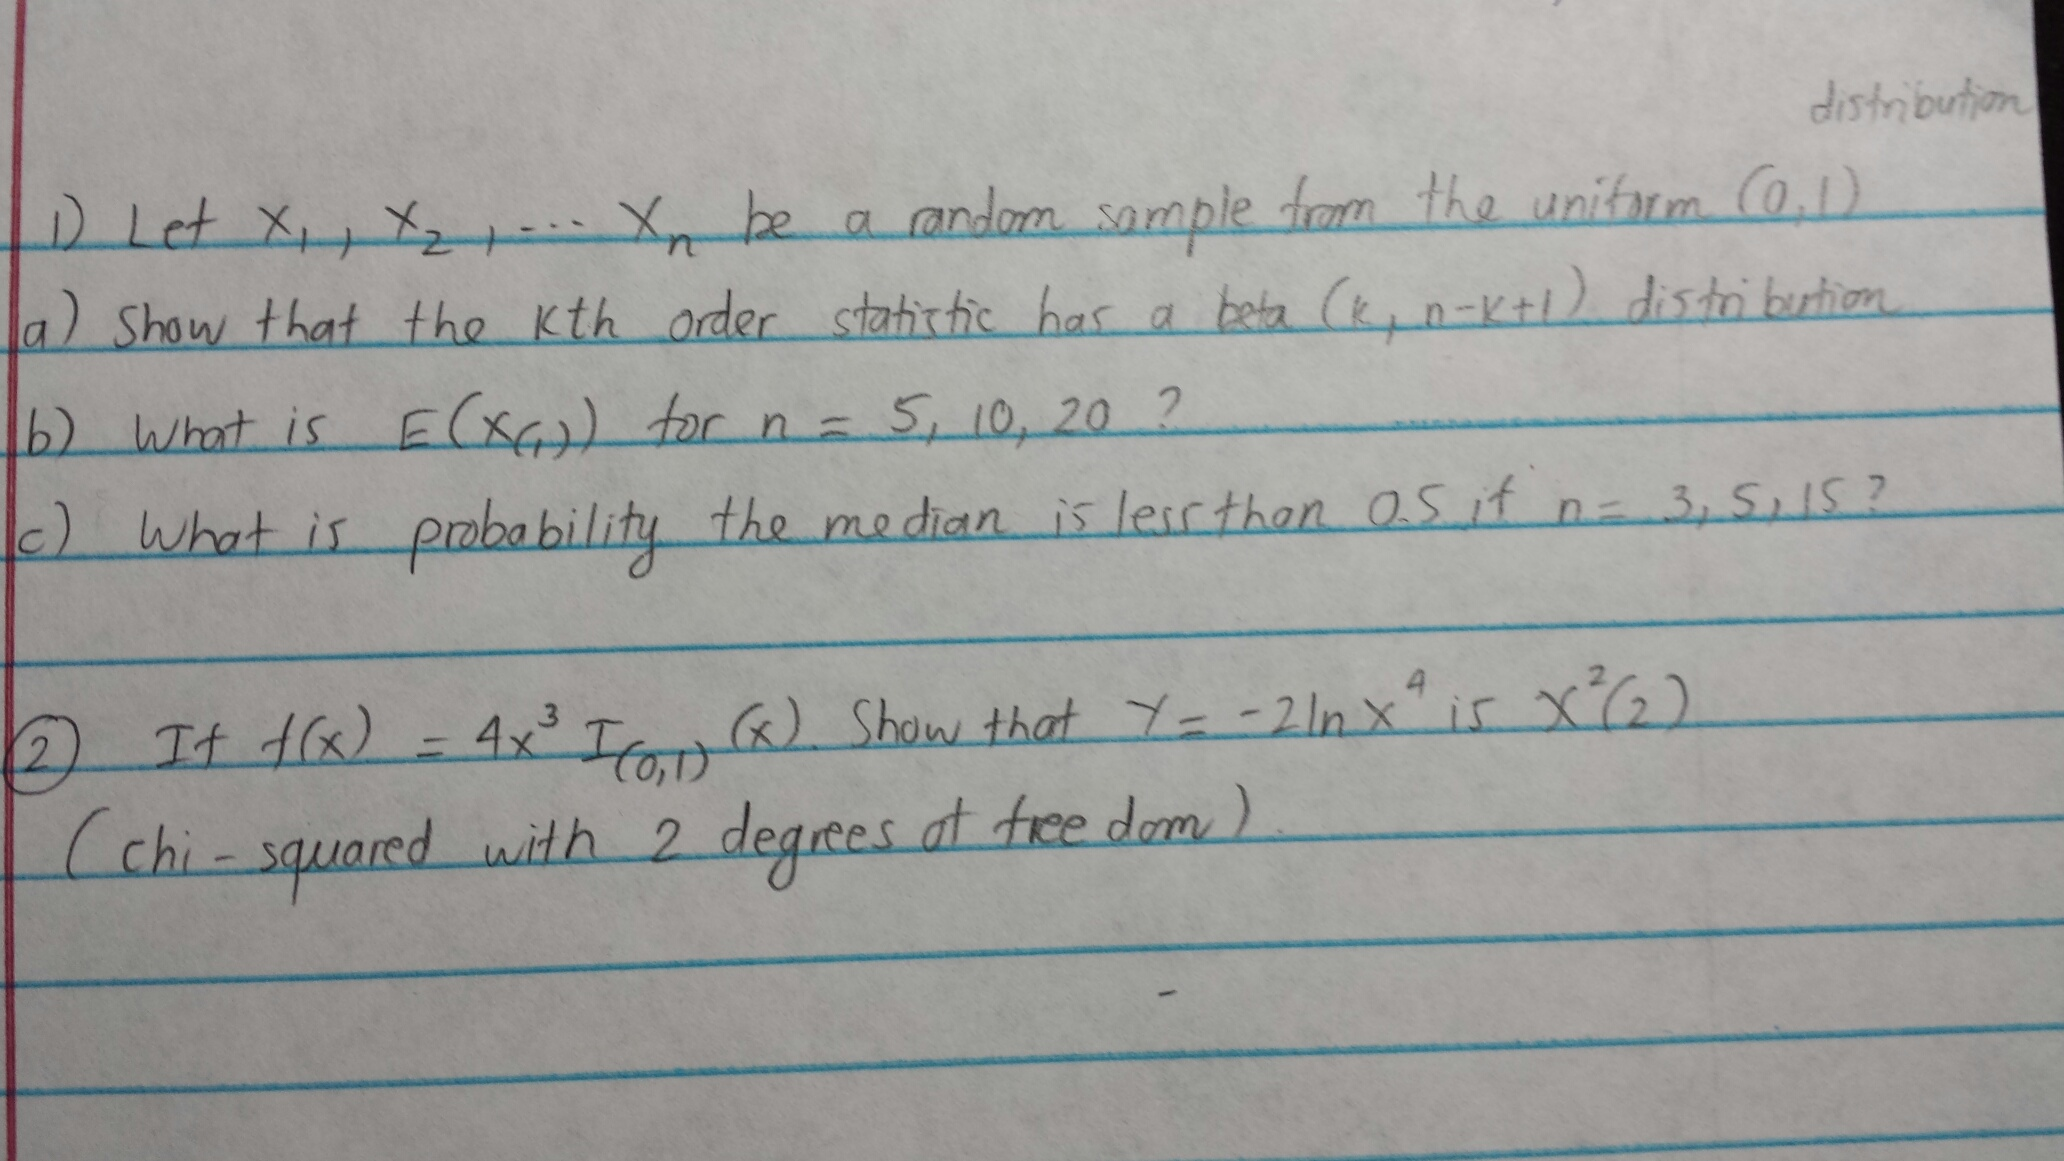 distribution
1) Let X₁, X₂, ... Xₙ be a random sample from the uniform (0,1)
a) Show that the kth order statistic has a beta (k, n-k+1) distribution
b) What is E(X₍₁₎) for n = 5, 10, 20 ?
c) What is probability the median is less than 0.5 if n = 3, 5, 15 ?
2 If f(x) = 4x³ I₍₀,₁₎ (x). Show that Y = -2 ln x⁴ is X²(2)
(chi-squared with 2 degrees of freedom).